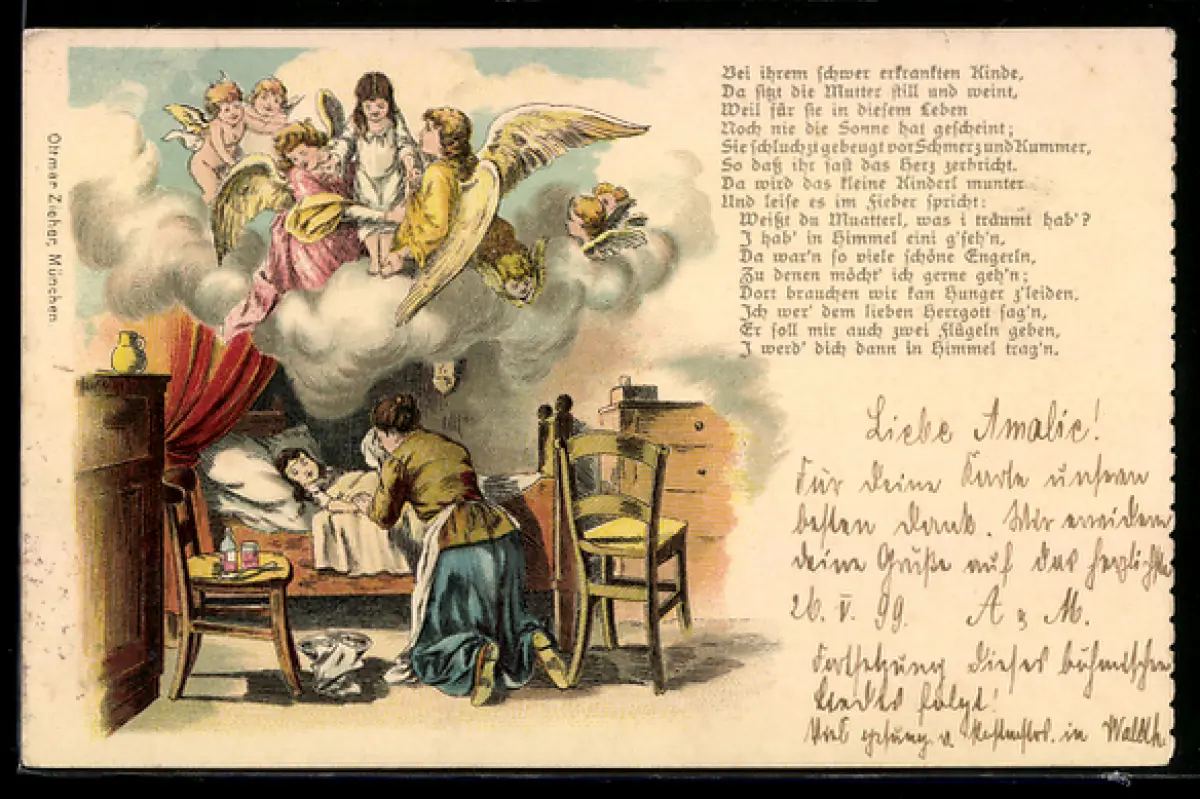 Ottmar Zieher, München
Bei ihrem schwer erkrankten Kinde,
Da sitzt die Mutter still und weint,
Weil für sie in diesem Leben
Noch nie die Sonne hat gescheint;
Sie schluchzt gebeugt vor Schmerz und Kummer,
So daß ihr fast das Herz zerbricht.
Da wird das kleine Kinderl munter
Und leise es im Fieber spricht:
Weißt du Muatterl, was i träumt hab'?
I hab' in Himmel eini g'seh'n,
Da war'n so viele schöne Engerln,
Zu denen möcht' ich gerne geh'n;
Dort brauchen wir kan Hunger z'leiden,
Ich wer' dem lieben Herrgott sag'n,
Er soll mir auch zwei Flügeln geben,
I werd' dich dann in Himmel trag'n.
Liebe Amalie!
Für deine Karte unsern
besten Dank. Wir erwidern
deine Grüße auf das herzlichste
26. V. 99. A M.
Fortsetzung dieses böhmischen
Liedes folgt!
Viel gesung. v. in Waldh.